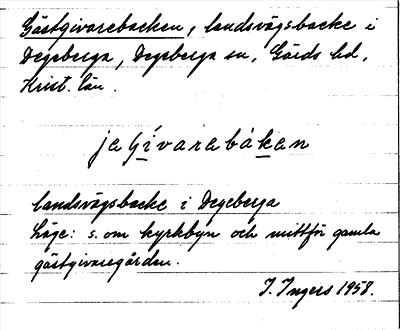 Gästgivarebacken, landsvägsbacke i
Degeberga, Degeberga sn, Gärds hd,
Krist. län.
jaʃívarabákan
landsvägsbacke i Degeberga
Läge: s. om kyrkbyn och mittför gamla
gästgivaregården.
I. Ingers 1958.